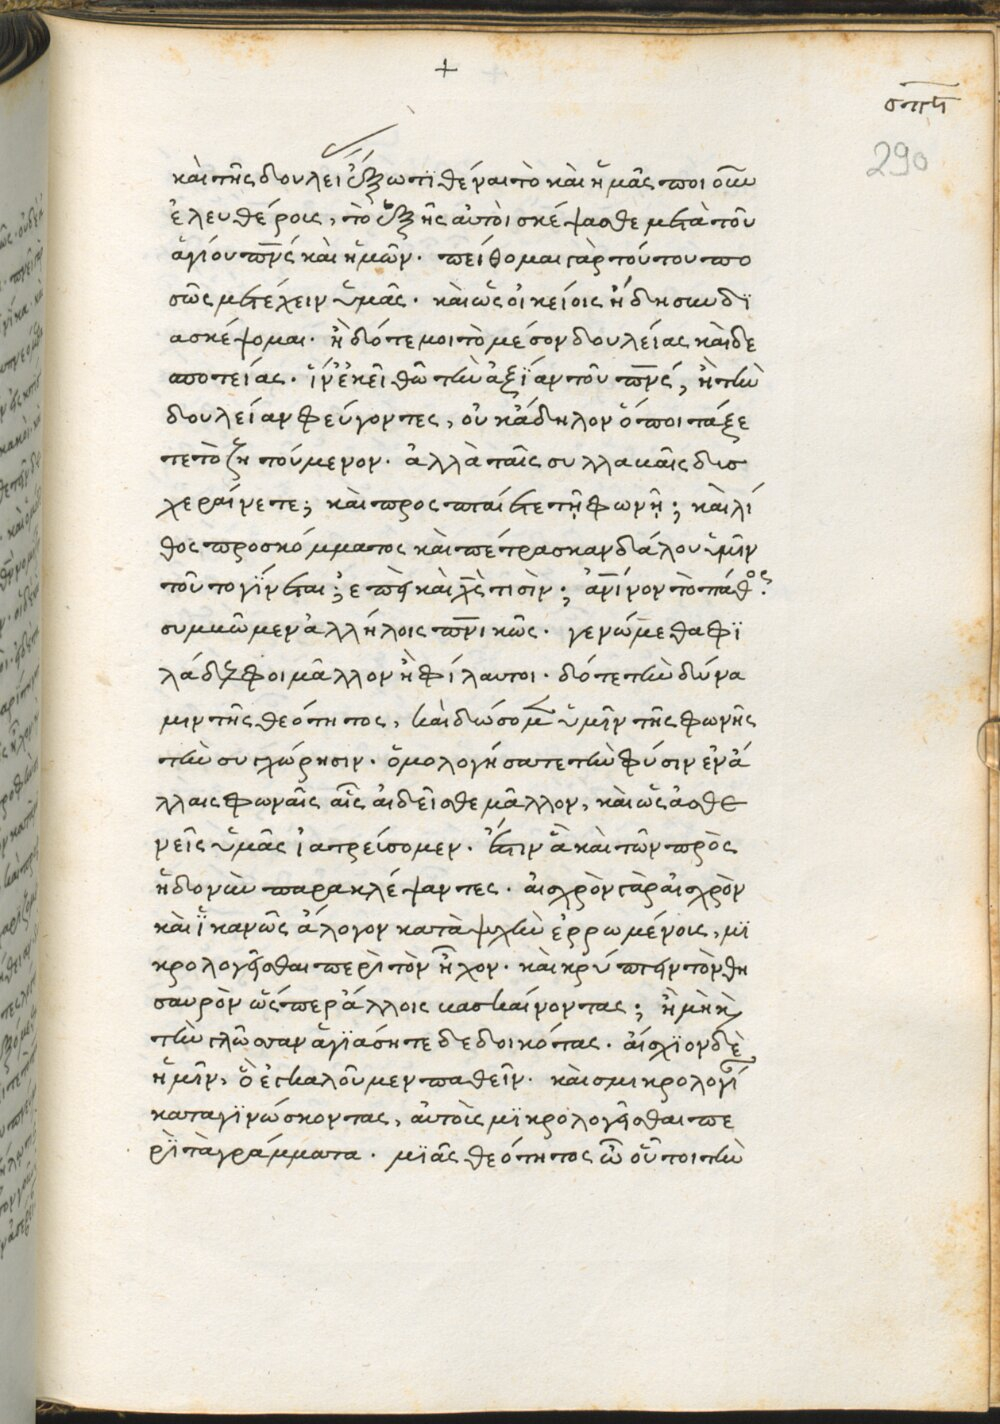 +
σπη
290
καὶ τῆς δουλεί ἔξω τϊθέναι τὸ καὶ ἡμᾶς ποιοῦν
ἐλευθέροις, τὸ ἑξῆς αὐτοὶ σκέψασθε μετὰ τοῦ
ἁγίου πν̅ς καὶ ἡμῶν. πείθομαι γὰρ τούτου πο
σῶς μετέχειν ὑμᾶς. καὶ ὡς οἰκείοις ἤδη συνδϊ
ασκέψομαι. ἢ δότε μοι τὸ μέσον δουλείας καὶ δε
σποτείας. ἵν' ἐκεῖ θῶ τὴν ἀξΐαν τοῦ πν̅ς, ἢ τὴν
δουλείαν φεύγοντες, οὐκ ἄδηλον ὅποι τάξε
τε τὸ ζητούμενον. ἀλλὰ ταῖς συλλαβαῖς δυσ
χεραίνετε; καὶ προσπταίετε τῇ φωνῇ; καὶ λί
θος προσκόμματος καὶ πέτρα σκανδάλου ὑμῖν
τοῦτο γΐνεται; ἐπεὶ καὶ χ̅ς τισὶν; ἀν̅ινον τὸ πάθος.
συμβῶμεν ἀλλήλοις πν̅ικῶς. γενώμεθα φϊ
λάδελφοι μᾶλλον ἢ φίλαυτοι. δότε τὴν δύνα
μιν τῆς θεότητος, καὶ δώσομεν ὑμῖν τῆς φωνῆς
τὴν συγχώρησιν. ὁμολογήσατε τὴν φύσιν ἐν ἄ
λλαις φωναῖς αἷς αἰδεῖσθε μᾶλλον, καὶ ὡς ἀσθε
νεῖς ὑμᾶς ἰατρεύσομεν. ἔστιν ἃ καὶ τῶν πρὸς
ἡδονὴν παρακλέψαντες. αἰσχρὸν γὰρ αἰσχρὸν
καὶ ἵκανῶς ἄλογον κατὰ ψυχὴν ἐρρωμένοις, μϊ
κρολογεῖσθαι περὶ τὸν ἦχον. καὶ κρύπτειν τὸν θη
σαυρὸν ὥσπερ ἄλλοις βασκαίνοντας; ἢ μὴ κ(αὶ)
τὴν γλῶσσαν ἁγϊάσητε δεδοικότας. αἴσχϊον δὲ
ἡμῖν, ὃ ἐγκαλοῦμεν παθεῖν. καὶ σμικρολογί
καταγϊνώσκοντας, αὐτοὺς μϊκρολογεῖσθαι πε
ρὶ τὰ γράμματα. μϊᾶς θεότητος ὦ οὗτοι τὴν